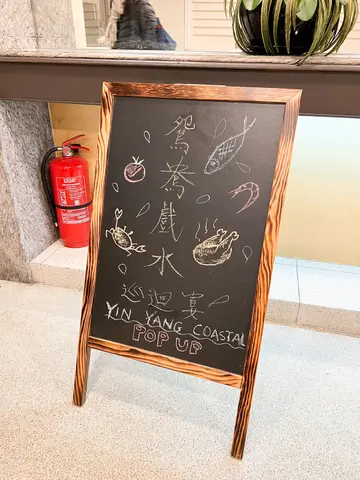 鴛
鴦
戲
水
巡迴宴
YIN YANG COASTAL
POP UP